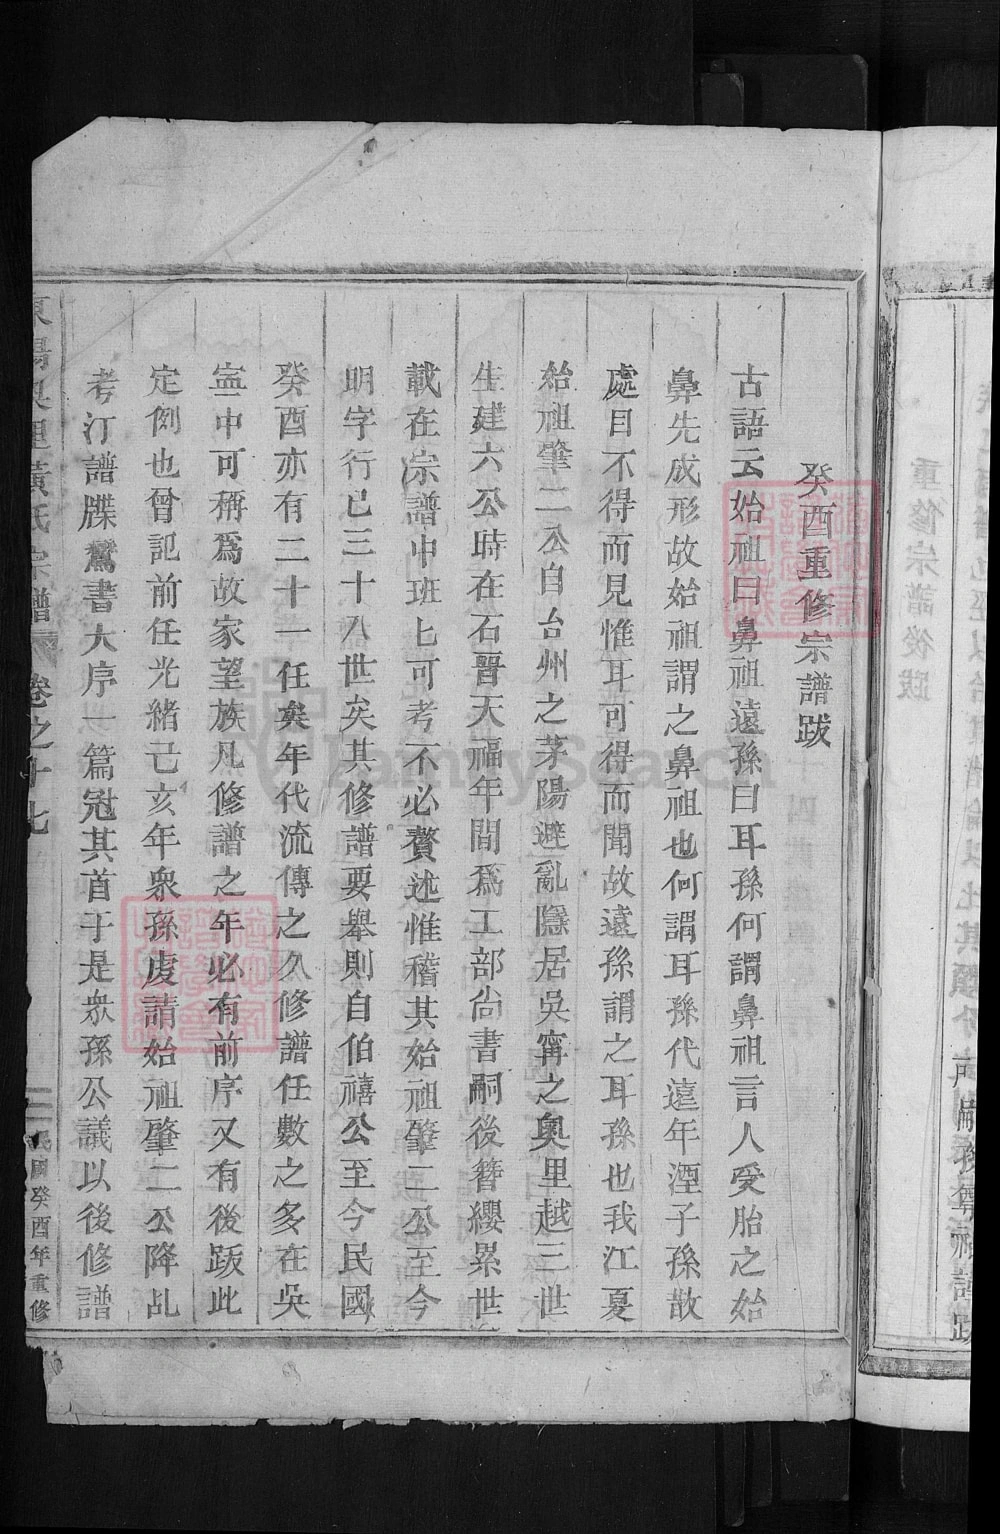 癸酉重修宗譜跋
古語云始祖曰鼻祖遠孫曰耳孫何謂鼻祖言人受胎之始
鼻先成形故始祖謂之鼻祖也何謂耳孫代遠年湮子孫散
處目不得而見惟耳可得而聞故遠孫謂之耳孫也我江夏
始祖肇二公自台州之茅陽避亂隱居吳寧之奧里越三世
生建六公時在石晉天福年間爲工部尙書嗣後簪纓累世
載在宗譜中班七可考不必贅述惟稽其始祖肇二公至今
明字行已三十八世矣其修譜要舉則自伯禧公至今民國
癸酉亦有二十一任矣年代流傳之久修譜任數之多在吳
寍中可稱爲故家望族凡修譜之年必有前序又有後跋此
定例也曾記前任光緒己亥年衆孫虔請始祖肇二公降乩
考訂譜牒鸞書大序一篇冠其首于是衆孫公議以後修譜
東陽奧里黃氏宗譜
卷之十七
民國癸酉年重修
重修宗譜後跋